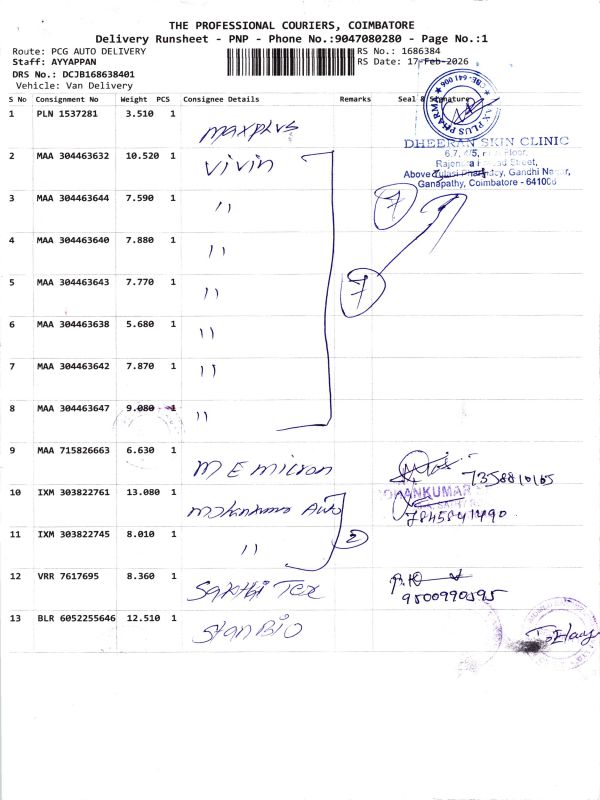 THE PROFESSIONAL COURIERS, COIMBATORE
Delivery Runsheet - PNP - Phone No.:9047080280 - Page No.:1
Route: PCG AUTO DELIVERY RS No.: 1686384
Staff: AYYAPPAN RS Date: 17-Feb-2026
DRS No.: DCJB168638401
Vehicle: Van Delivery
S No Consignment No Weight PCS Consignee Details Remarks Seal & Signature
1 PLN 1537281 3.510 1 maxplus
PLUS PHARMA
CBE- 641 006
DHEERAN SKIN CLINIC
6,7, 4/5, Floor,
Street,
Above Tulasi Pharmacy, Gandhi Nagar,
Ganapathy, Coimbatore - 641006
2 MAA 304463632 10.520 1 Vivin
3 MAA 304463644 7.590 1 11 7
4 MAA 304463640 7.880 1 11
5 MAA 304463643 7.770 1 11 7
6 MAA 304463638 5.680 1 11
7 MAA 304463642 7.870 1 11
8 MAA 304463647 9.080 1 11
9 MAA 715826663 6.630 1 M E micron 7358810165
10 IXM 303822761 13.080 1 mohankumar Auto
OHANKUMAR
7845841490
11 IXM 303822745 8.010 1 11 2
12 VRR 7617695 8.360 1 Sakthi Tex
9500990595
13 BLR 6052255646 12.510 1 Stan Bio